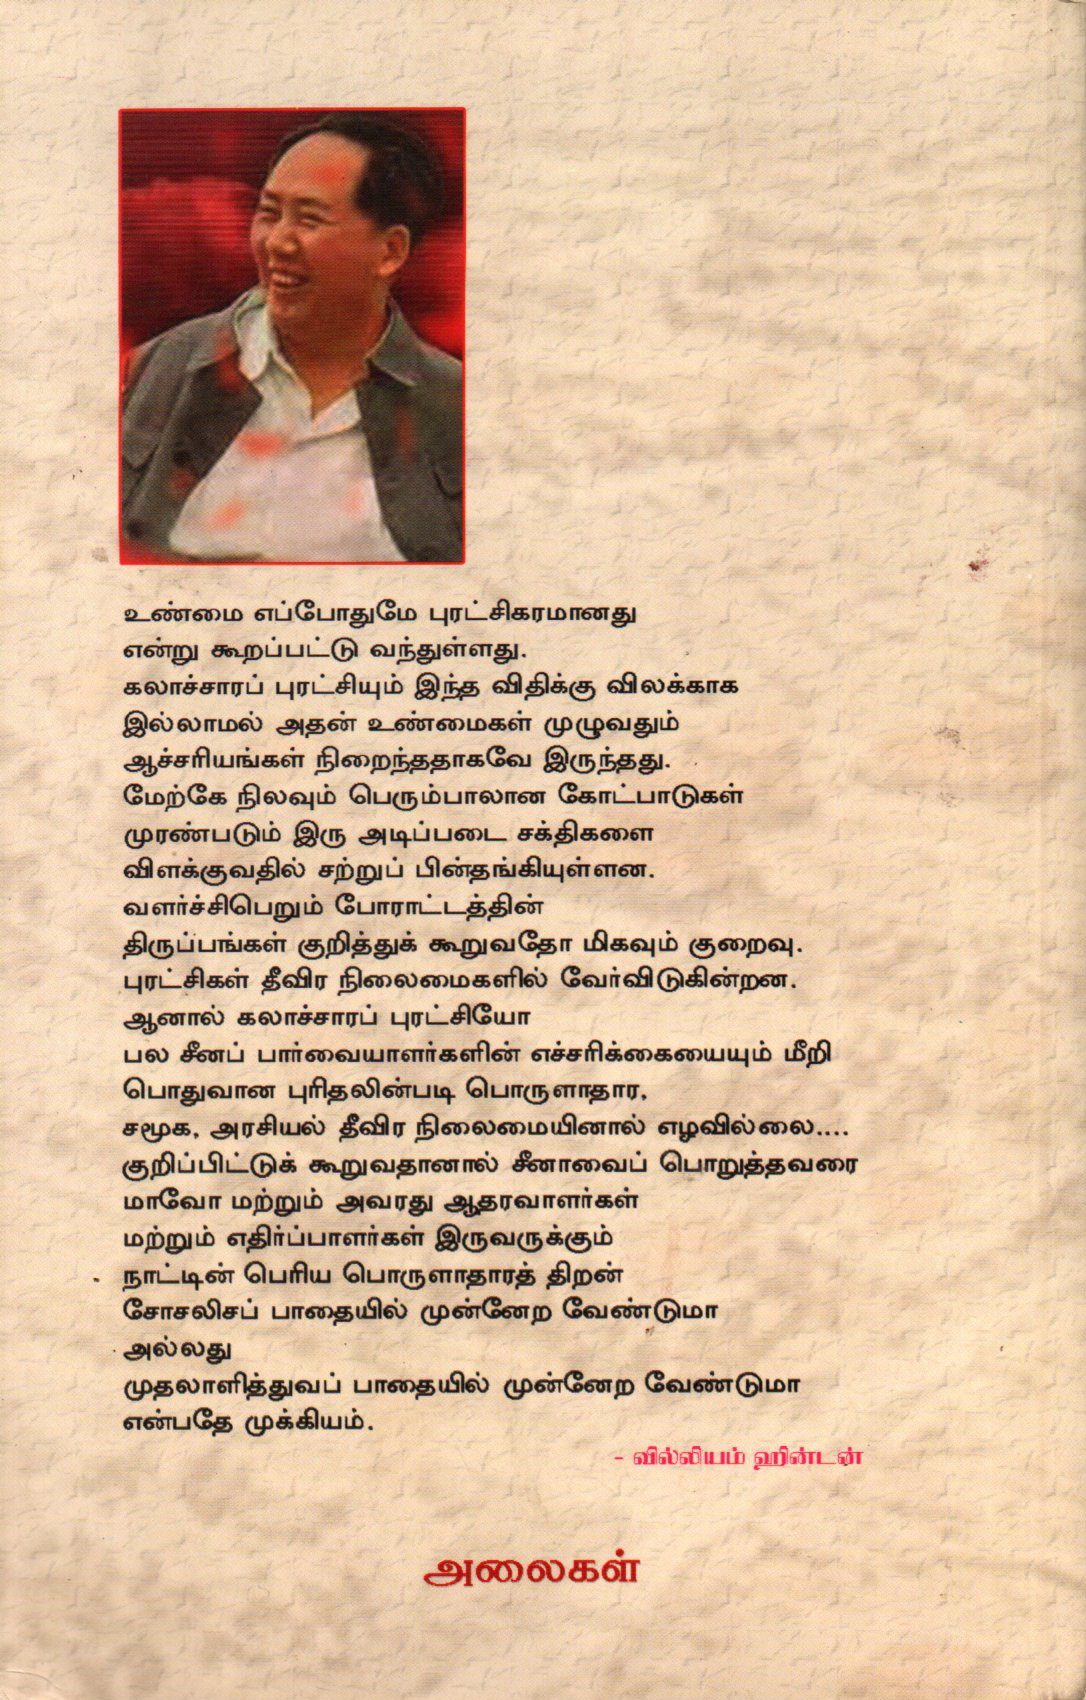 உண்மை எப்போதுமே புரட்சிகரமானது
என்று கூறப்பட்டு வந்துள்ளது.
கலாச்சாரப் புரட்சியும் இந்த விதிக்கு விலக்காக
இல்லாமல் அதன் உண்மைகள் முழுவதும்
ஆச்சரியங்கள் நிறைந்ததாகவே இருந்தது.
மேற்கே நிலவும் பெரும்பாலான கோட்பாடுகள்
முரண்படும் இரு அடிப்படை சக்திகளை
விளக்குவதில் சற்றுப் பின்தங்கியுள்ளன.
வளர்ச்சிபெறும் போராட்டத்தின்
திருப்பங்கள் குறித்துக் கூறுவதோ மிகவும் குறைவு.
புரட்சிகள் தீவிர நிலைமைகளில் வேர்விடுகின்றன.
ஆனால் கலாச்சாரப் புரட்சியோ
பல சீனப் பார்வையாளர்களின் எச்சரிக்கையையும் மீறி
பொதுவான புரிதலின்படி பொருளாதார,
சமூக, அரசியல் தீவிர நிலைமையினால் எழவில்லை....
குறிப்பிட்டுக் கூறுவதானால் சீனாவைப் பொறுத்தவரை
மாவோ மற்றும் அவரது ஆதரவாளர்கள்
மற்றும் எதிர்ப்பாளர்கள் இருவருக்கும்
நாட்டின் பெரிய பொருளாதாரத் திறன்
சோசலிசப் பாதையில் முன்னேற வேண்டுமா
அல்லது
முதலாளித்துவப் பாதையில் முன்னேற வேண்டுமா
என்பதே முக்கியம்.
- வில்லியம் ஹின்டன்
அலைகள்